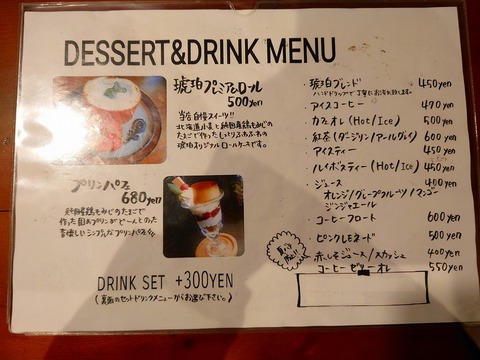 DESSERT&DRINK MENU
琥珀プレミアムロール
500yen
当店自慢スイーツ!!
北海道小麦と純国産鶏もみじの
たまごで作ったしっとりふわふわの
琥珀オリジナルロールケーキです。
プリンパフェ
680yen
純国産鶏もみじのたまごで
作った固めプリンがどーんとのった
昔懐しいシンプルなプリンパフェ!!
DRINK SET +300YEN
(裏面のセットドリンクメニューからお選び下さい。)
・琥珀ブレンド 450yen
ハンドドリップで丁寧にお淹れ致します。
・アイスコーヒー 470yen
・カフェオレ(Hot/Ice) 500yen
・紅茶(ダージリン/アールグレイ) 600yen
・アイスティー 450yen
・ルイボスティー(Hot/Ice) 450yen
・ジュース 400yen
オレンジ/グレープフルーツ/マンゴー
ジンジャエール
・コーヒーフロート 600yen
・ピンクレモネード 500yen
夏季限定!!
赤しそジュース/スカッシュ 400yen
コーヒーゼリーオレ 550yen